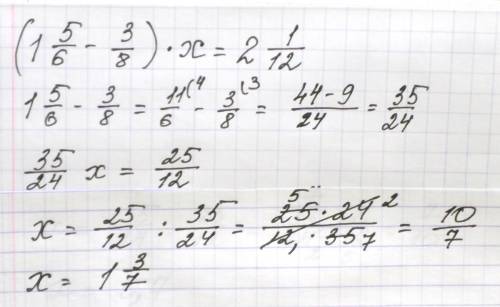 (1 5/6 - 3/8) · x = 2 1/12
1 5/6 - 3/8 = 11/6 (4 - 3/8 (3 = 44-9/24 = 35/24
35/24 x = 25/12
x = 25/12 : 35/24 = 5 25 · 24 2/12 1 · 35 7 = 10/7
x = 1 3/7